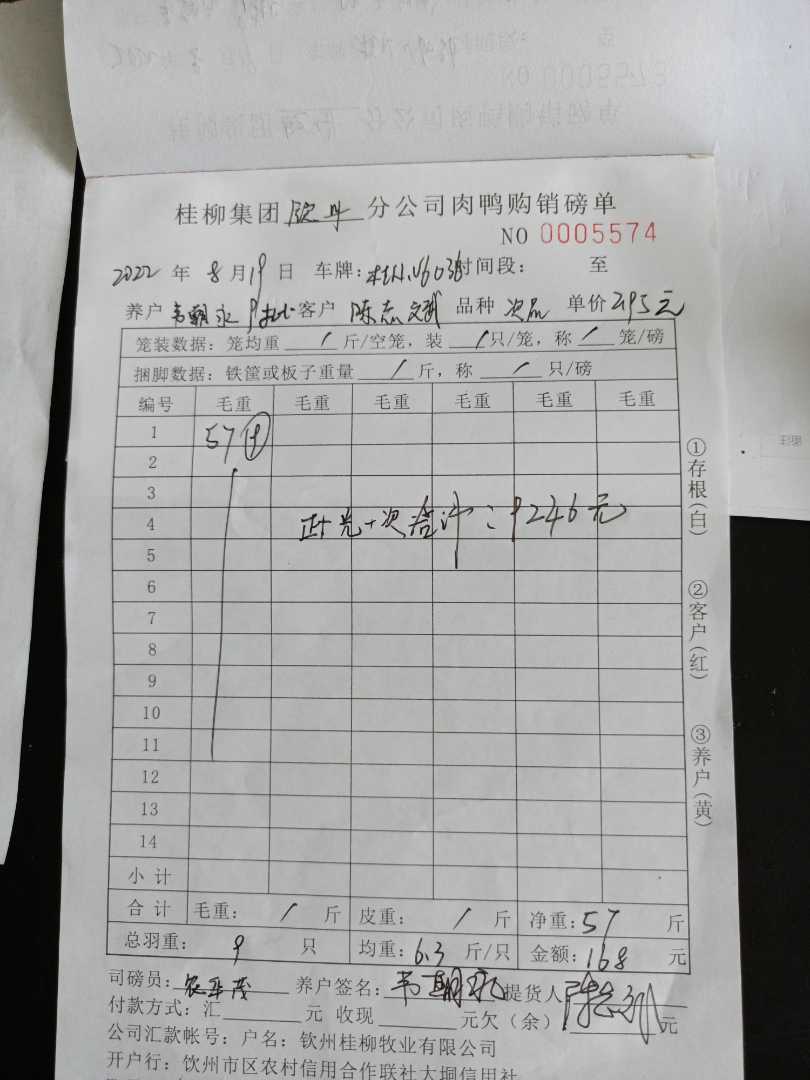 桂柳集团 钦州 分公司肉鸭购销磅单
NO 0005574
2022 年 8 月 19 日 车牌: 时间段: 至
养户 韦朝永 客户 陈志 品种 次品 单价 2.95元
笼装数据: 笼均重 / 斤/空笼, 装 / 只/笼, 称 / 笼/磅
捆脚数据: 铁筐或板子重量 / 斤, 称 / 只/磅
编号 毛重 毛重 毛重 毛重 毛重 毛重
1 57
2
3
4 正 次合计: 9246元
5
6
7
8
9
10
11
12
13
14
小 计
合 计 毛重: / 斤 皮重: / 斤 净重: 57 斤
总羽重: 9 只 均重: 6.3 斤/只 金额: 168 元
①存根(白) ②客户(红) ③养户(黄)
司磅员: 养户签名: 韦朝永 提货人
付款方式: 汇 元 收现 元欠(余) 元
公司汇款帐号: 户名: 钦州桂柳牧业有限公司
开户行: 钦州市区农村信用合作联社大垌信用社